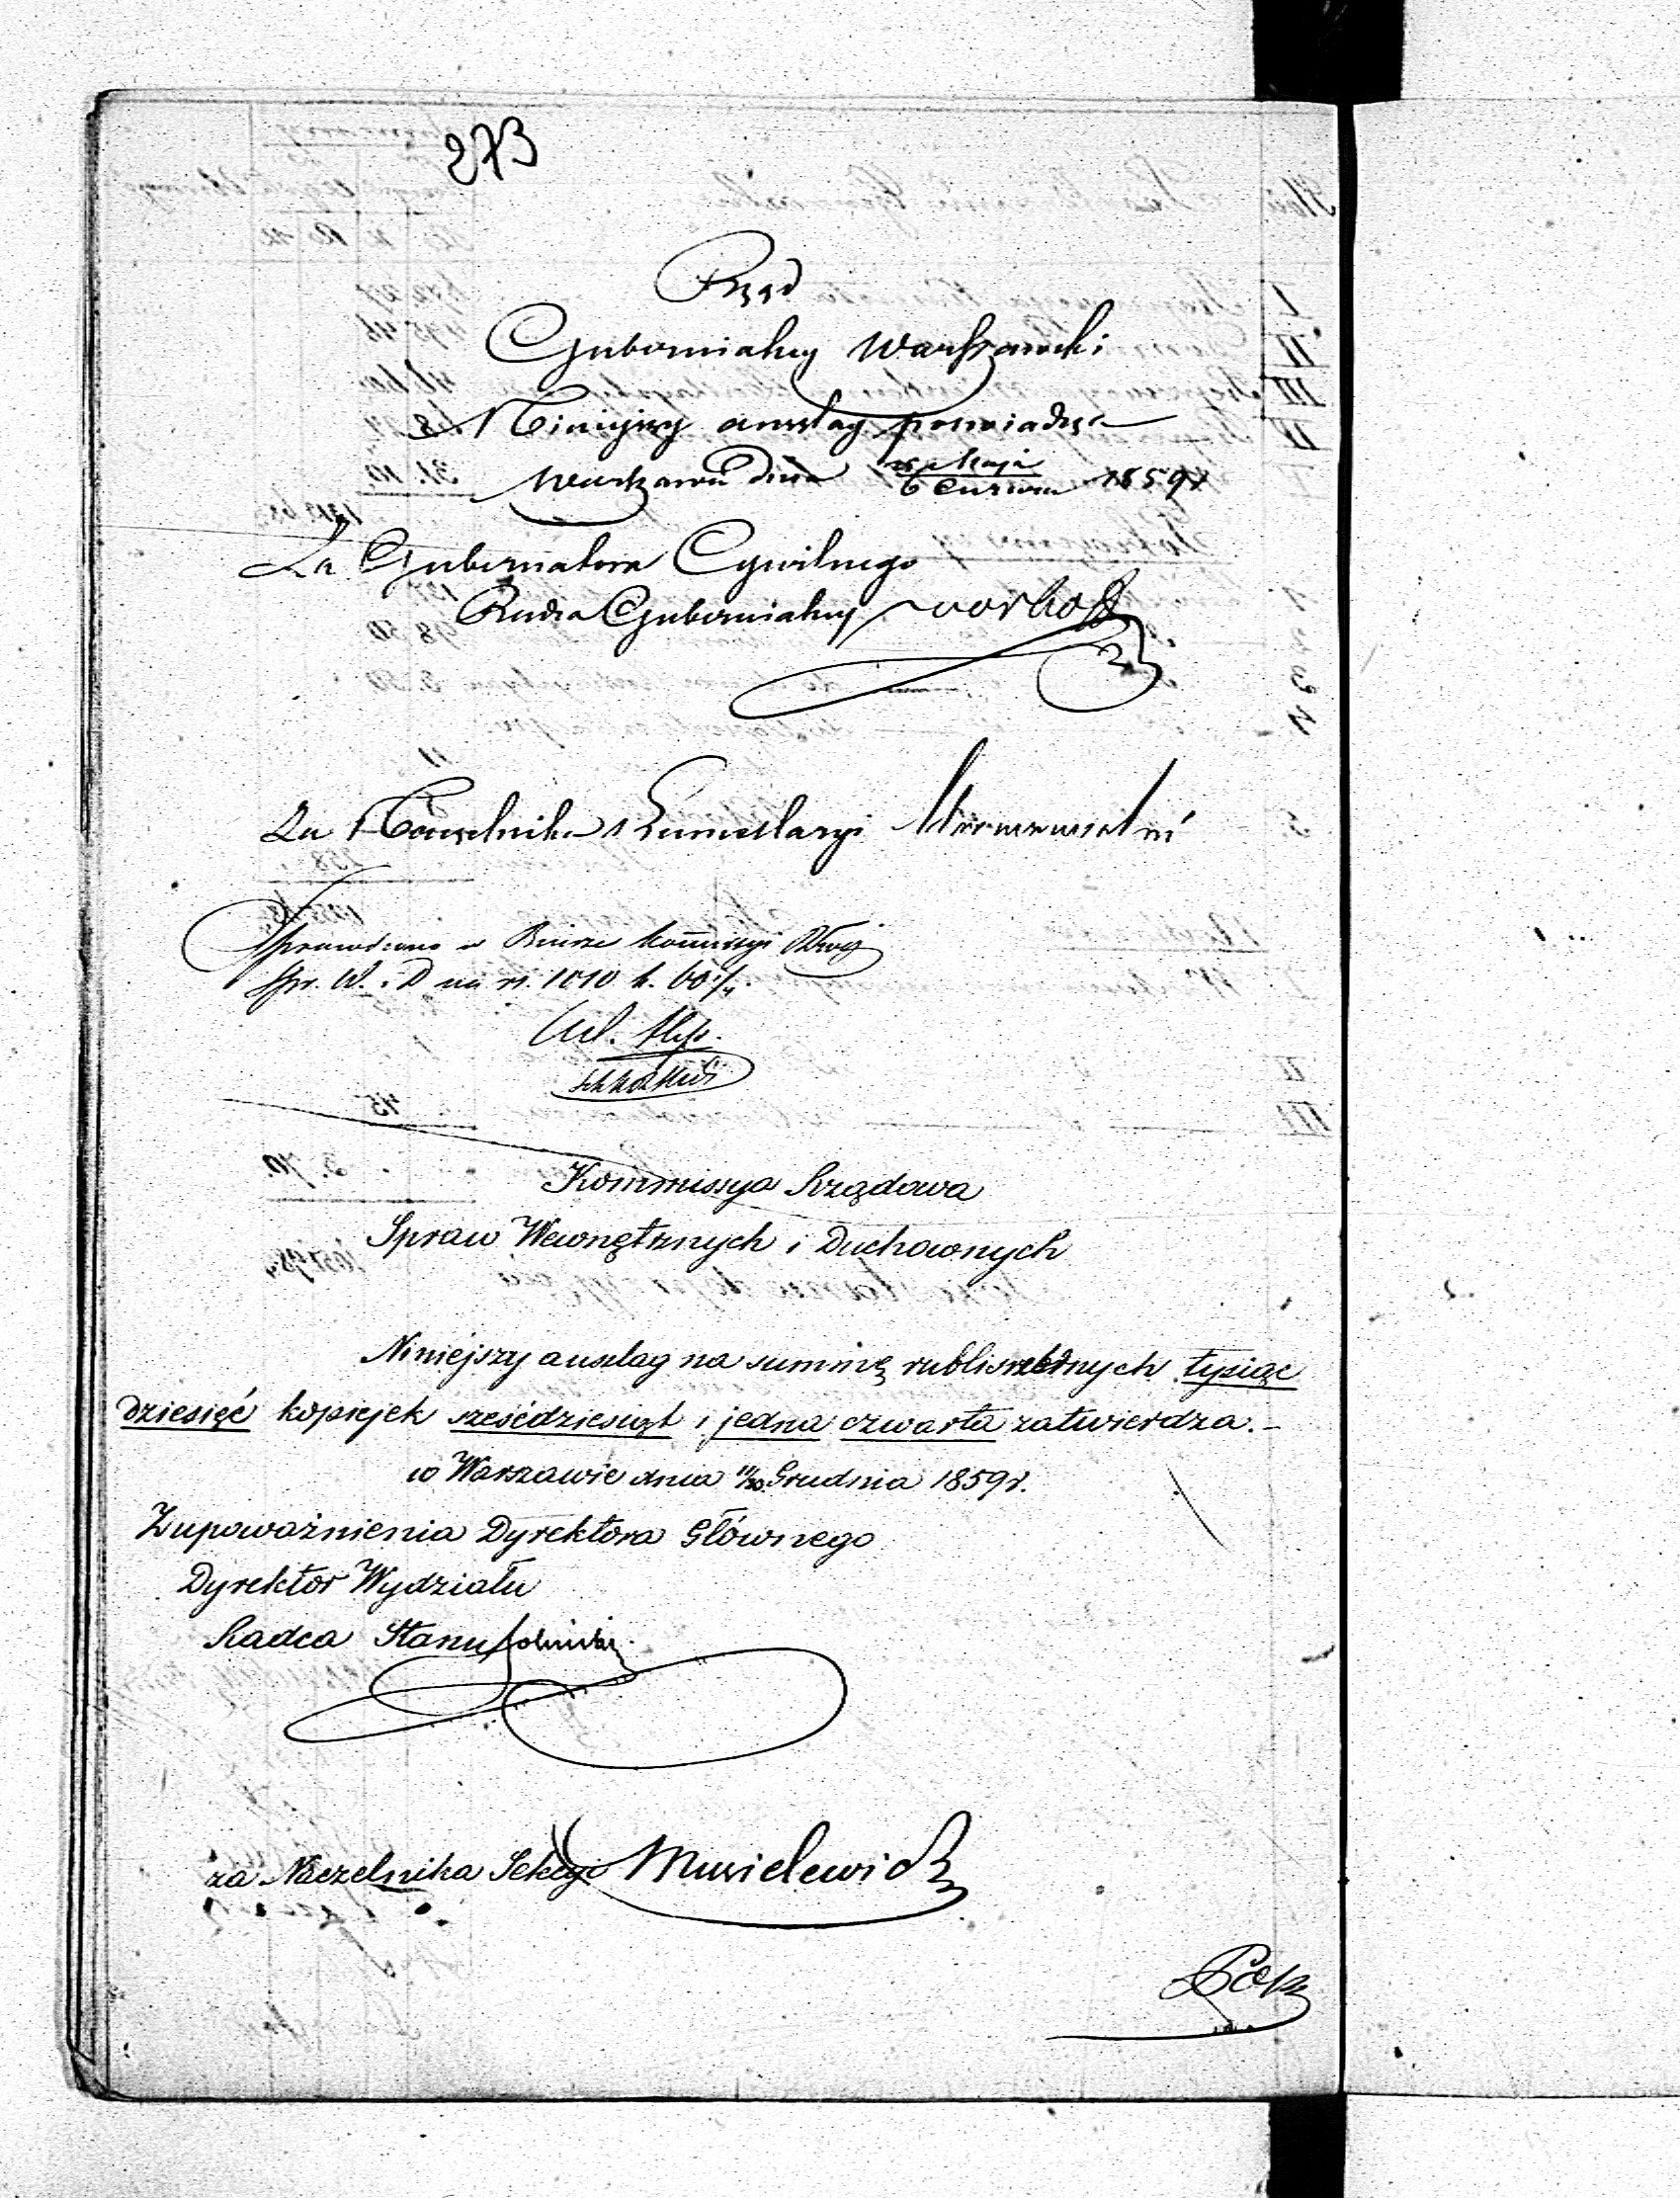 273
Rząd
Gubernialny Warszawski
Niniejszy anszlag poswiadcza
Warszawa dnia 25 Maja / 6 Czerwca 1859 r
Za Gubernatora Cywilnego
Radca Gubernialny
Za Naczelnika Kancellaryi
Sprawdzono w Biurze Kommissyi Rządowej
Spr. W. i D na rs. 1010 k. 60 1/4.
Kommissya Rządowa
Spraw Wewnętrznych i Duchownych
Niniejszy anszlag na summę rubli srebrnych tysiąc
dziesięć kopiejek sześćdziesiąt i jedna czwarta zatwierdza.-
w Warszawie dnia Grudnia 1859 r.
Z upoważnienia Dyrektora Głównego
Dyrektor Wydziału
Radca Stanu
za Naczelnika Sekcyi